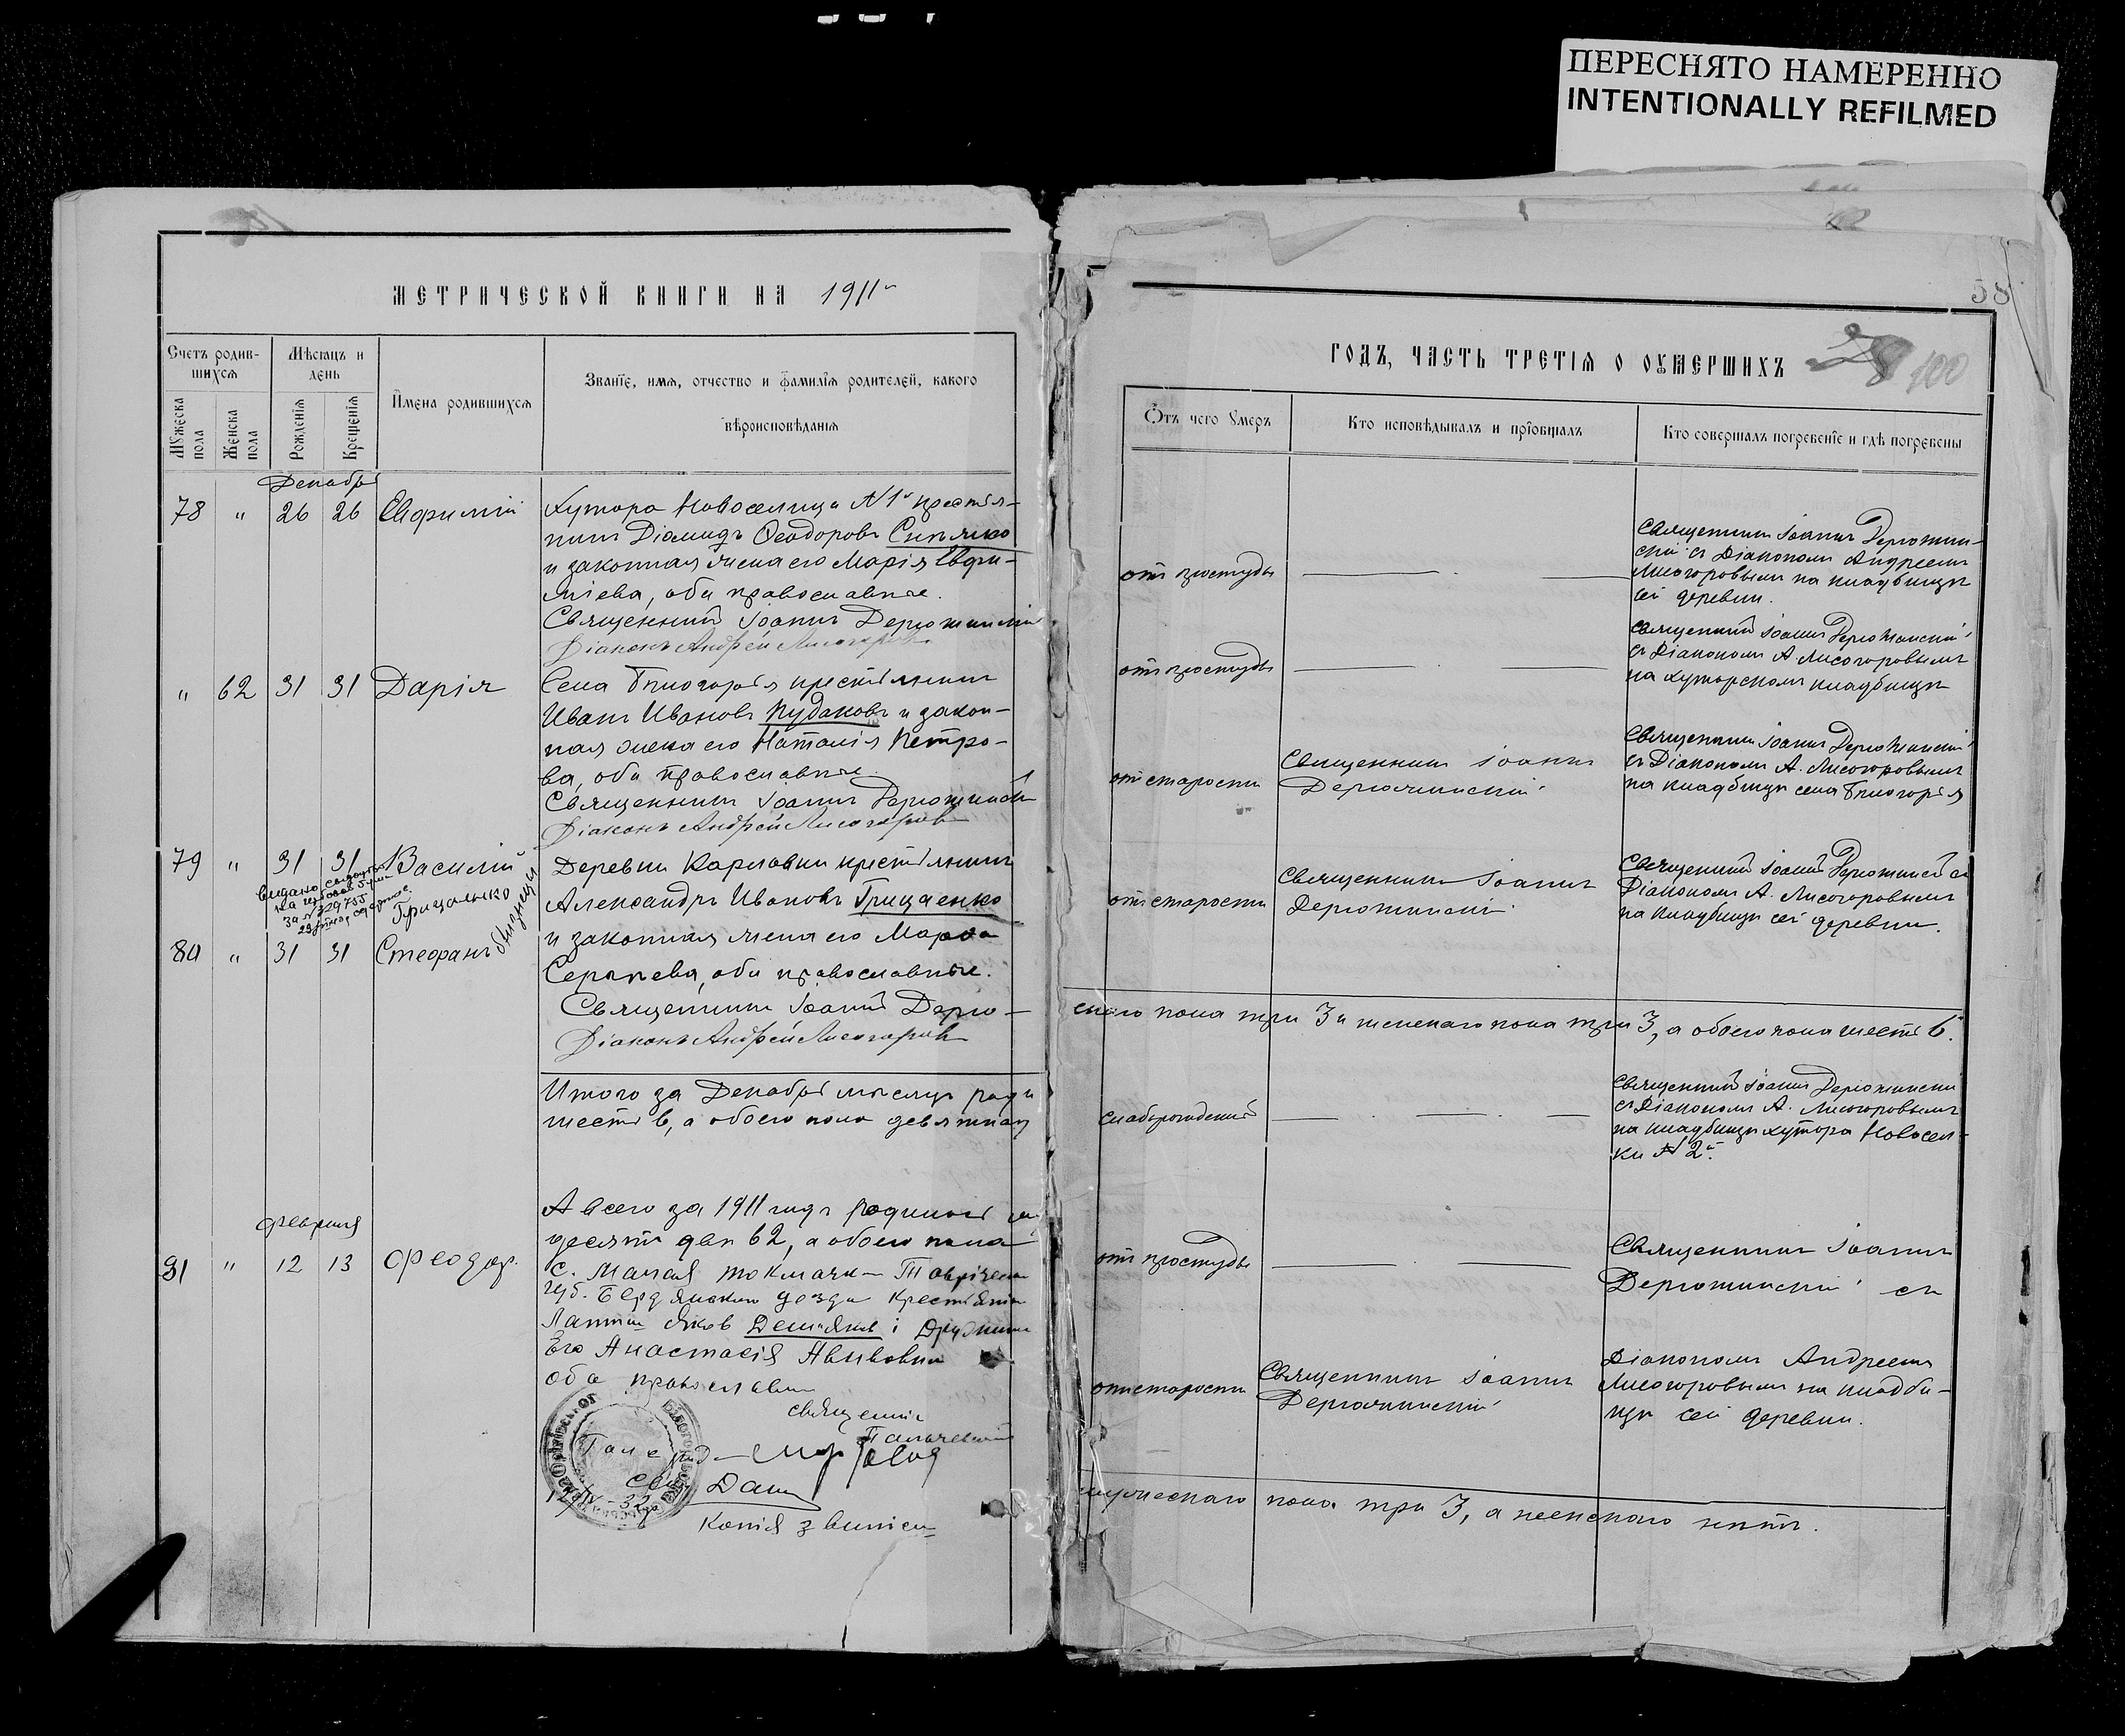 ПЕРЕСНЯТО НАМЕРЕННО
INTENTIONALLY REFILMED
МЕТРИЧЕСКОЙ КНИГИ НА 1911
Счетъ родив-
шихся
Мѣсяцъ и
день
Мужеска
пола
Женска
пола
Рожденія
Крещенія
Имена родившихся
Званіе, имя, отчество и фамилія родителей, какого
вѣроисповѣданія
Декабрь
78 " 26 26 Евфимій
Хутора Новоселица № 1 крестья-
нинъ Діамидъ Феодоровъ
и законная жена его Марія Евфи-
міева, оба православные.
Священникъ Іоаннъ Дерюжинскій
Діаконъ Андрей Лисогоровъ
" 62 31 31 Дарія
Села Благогорья крестьянинъ
Иванъ Ивановъ Кудаковъ и закон-
ная жена его Наталія Петро-
ва, оба православные.
Священникъ Іоаннъ Дерюжинскій
Діаконъ Андрей Лисогоровъ
79 " 31 31 Василій
Грищенко
близнецы
80 " 31 31 Стефанъ
Деревни Карловки крестьянинъ
Александръ Ивановъ Грищенко
и законная жена его Марфа
Сергіева, оба православные.
Священникъ Іоаннъ Дерю-
Діаконъ Андрей Лисогоровъ
Итого за Декабрь мѣсяцъ роди
шесть 6, а обоего пола девятнад
А всего за 1911 годъ родилось
десятъ два 62, а обоего пола
февраля
81 " 12 13 Феодор.
С. Малая Токмачка Таврическ
губ. Бердянского уезда крестьянин
Яков і дружина
Его Анастасія
оба православн
священік
Копія з
58
100
ГОДЪ, ЧАСТЬ ТРЕТІЯ О ОУМЕРШИХЪ
Отъ чего умеръ
Кто исповѣдывалъ и пріобщалъ
Кто совершалъ погребеніе и гдѣ погребены
отъ простуды
Священникъ Іоаннъ Дерюжин-
скій съ Діакономъ Андреемъ
Лисогоровымъ на кладбищѣ
сей деревни.
отъ простуды
Священникъ Іоаннъ Дерюжинскій
съ Діакономъ А. Лисогоровымъ
на хуторскомъ кладбищѣ
отъ старости
Священникъ Іоаннъ
Дерюжинскій
Священникъ Іоаннъ Дерюжинскій
съ Діакономъ А. Лисогоровымъ
на кладбищѣ села Благогорья
отъ старости
Священникъ Іоаннъ
Дерюжинскій
Священникъ Іоаннъ Дерюжинскій съ
Діакономъ А. Лисогоровымъ
на кладбищѣ сей деревни.
ского пола три 3 и женскаго пола три 3, а обоего пола шесть 6.
слаборожденый
Священникъ Іоаннъ Дерюжинскій
съ Діакономъ А. Лисогоровымъ
на кладбищѣ хутора Новосел-
ки № 2.
отъ простуды
Священникъ Іоаннъ
Дерюжинскій съ
отъ старости
Священникъ Іоаннъ
Дерюжинскій
Діакономъ Андреемъ
Лисогоровымъ на кладби-
щѣ сей деревни.
мужескаго пола три 3, а женскаго нѣтъ.